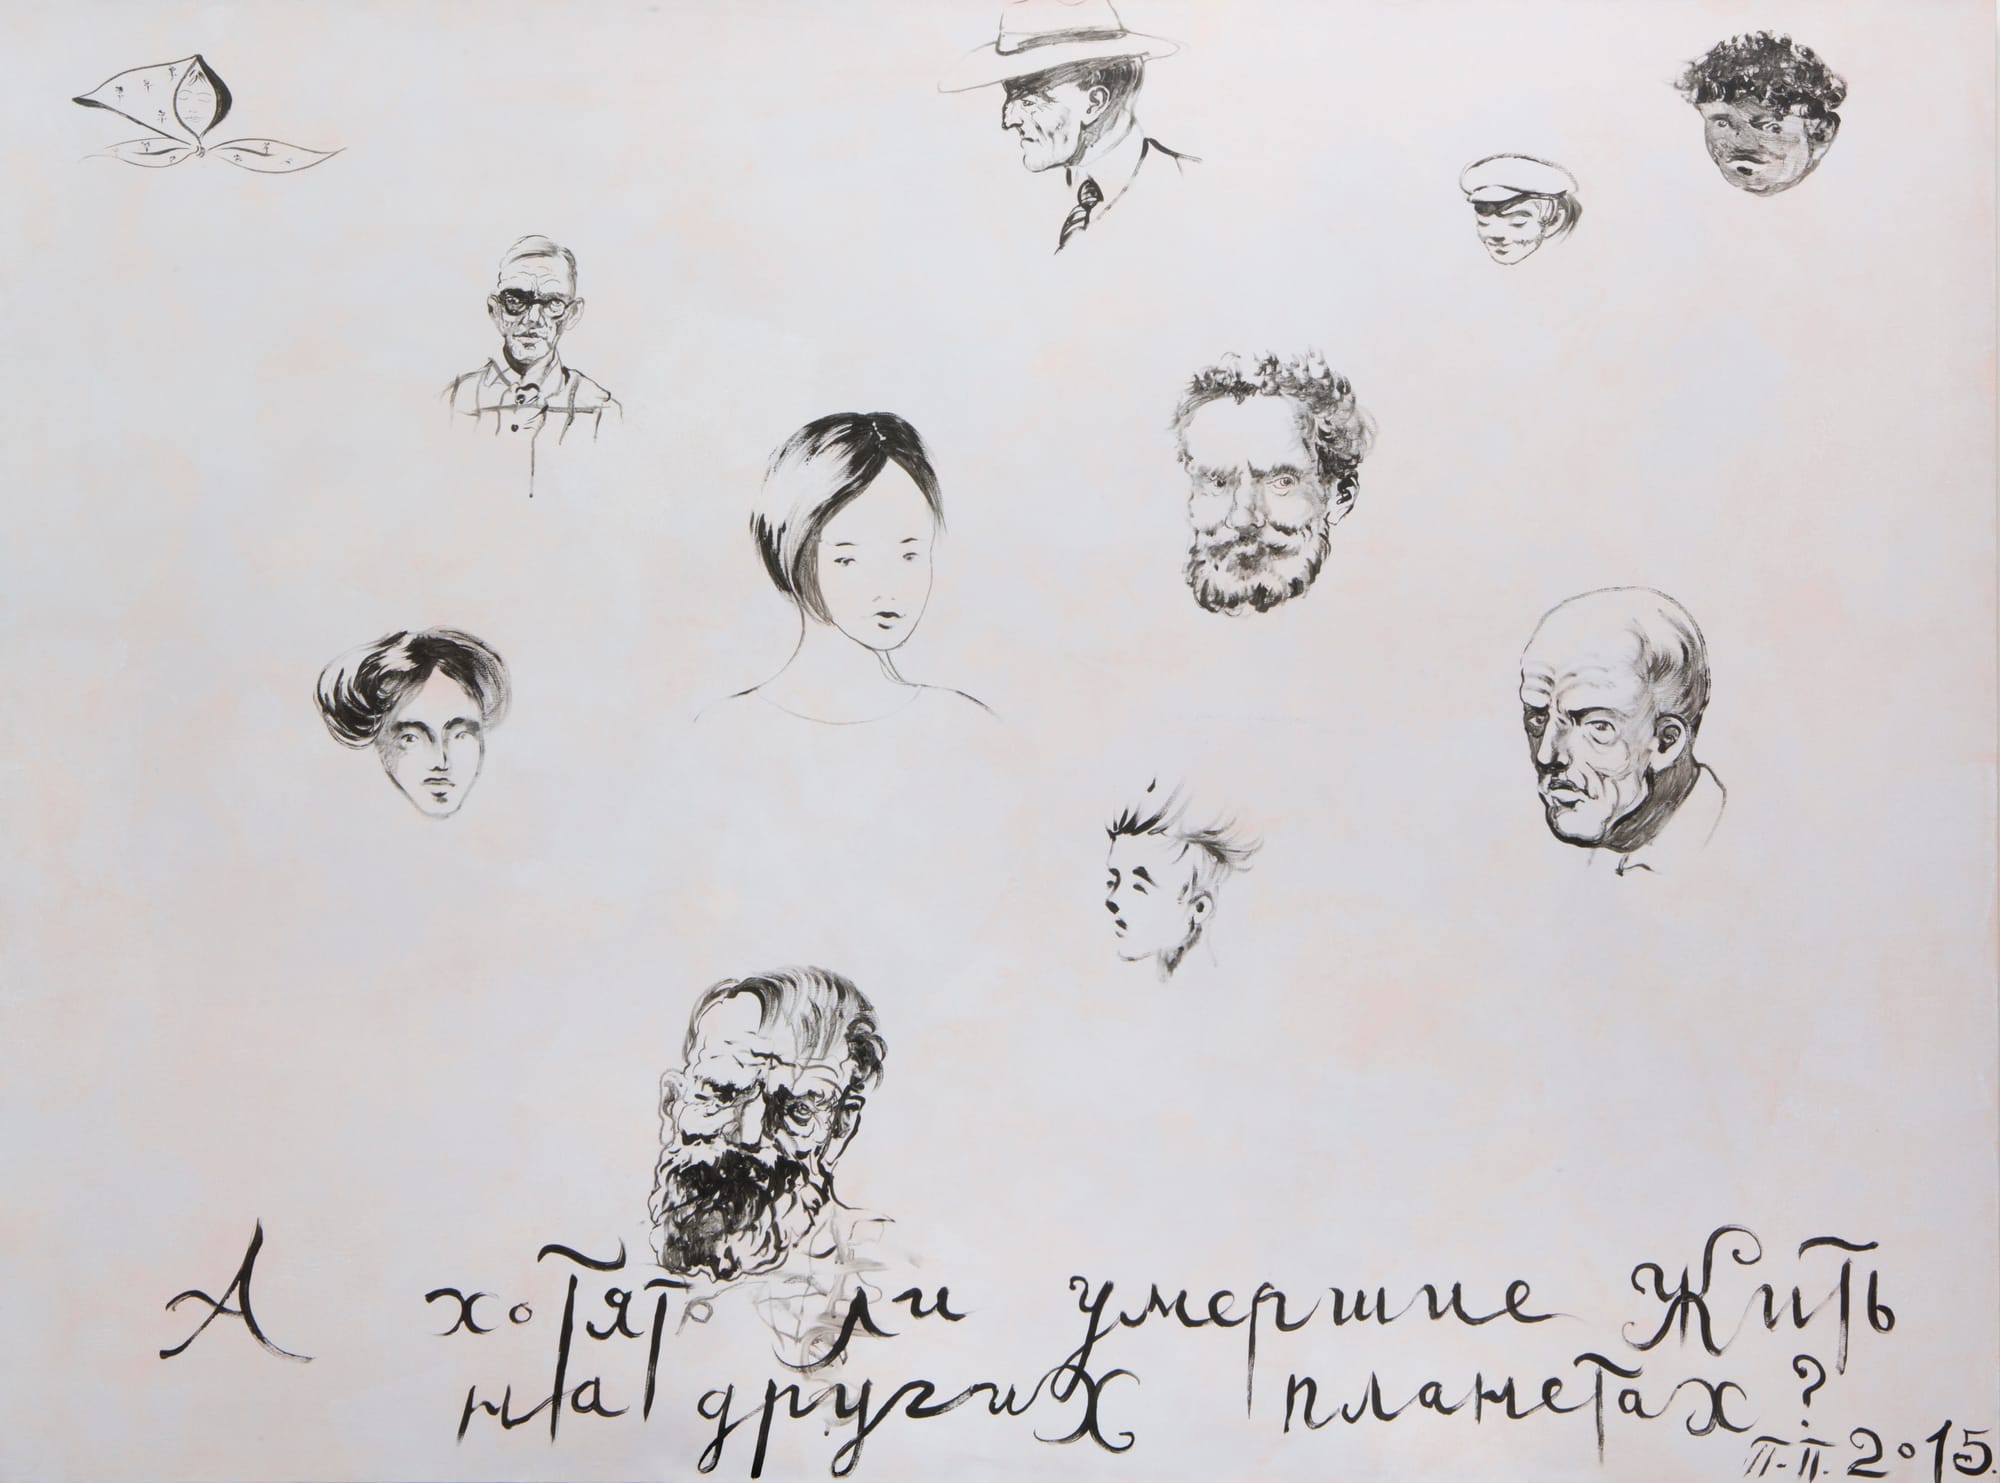 А хотят ли умершие Жить
на других планетах?
П.П. 2015.